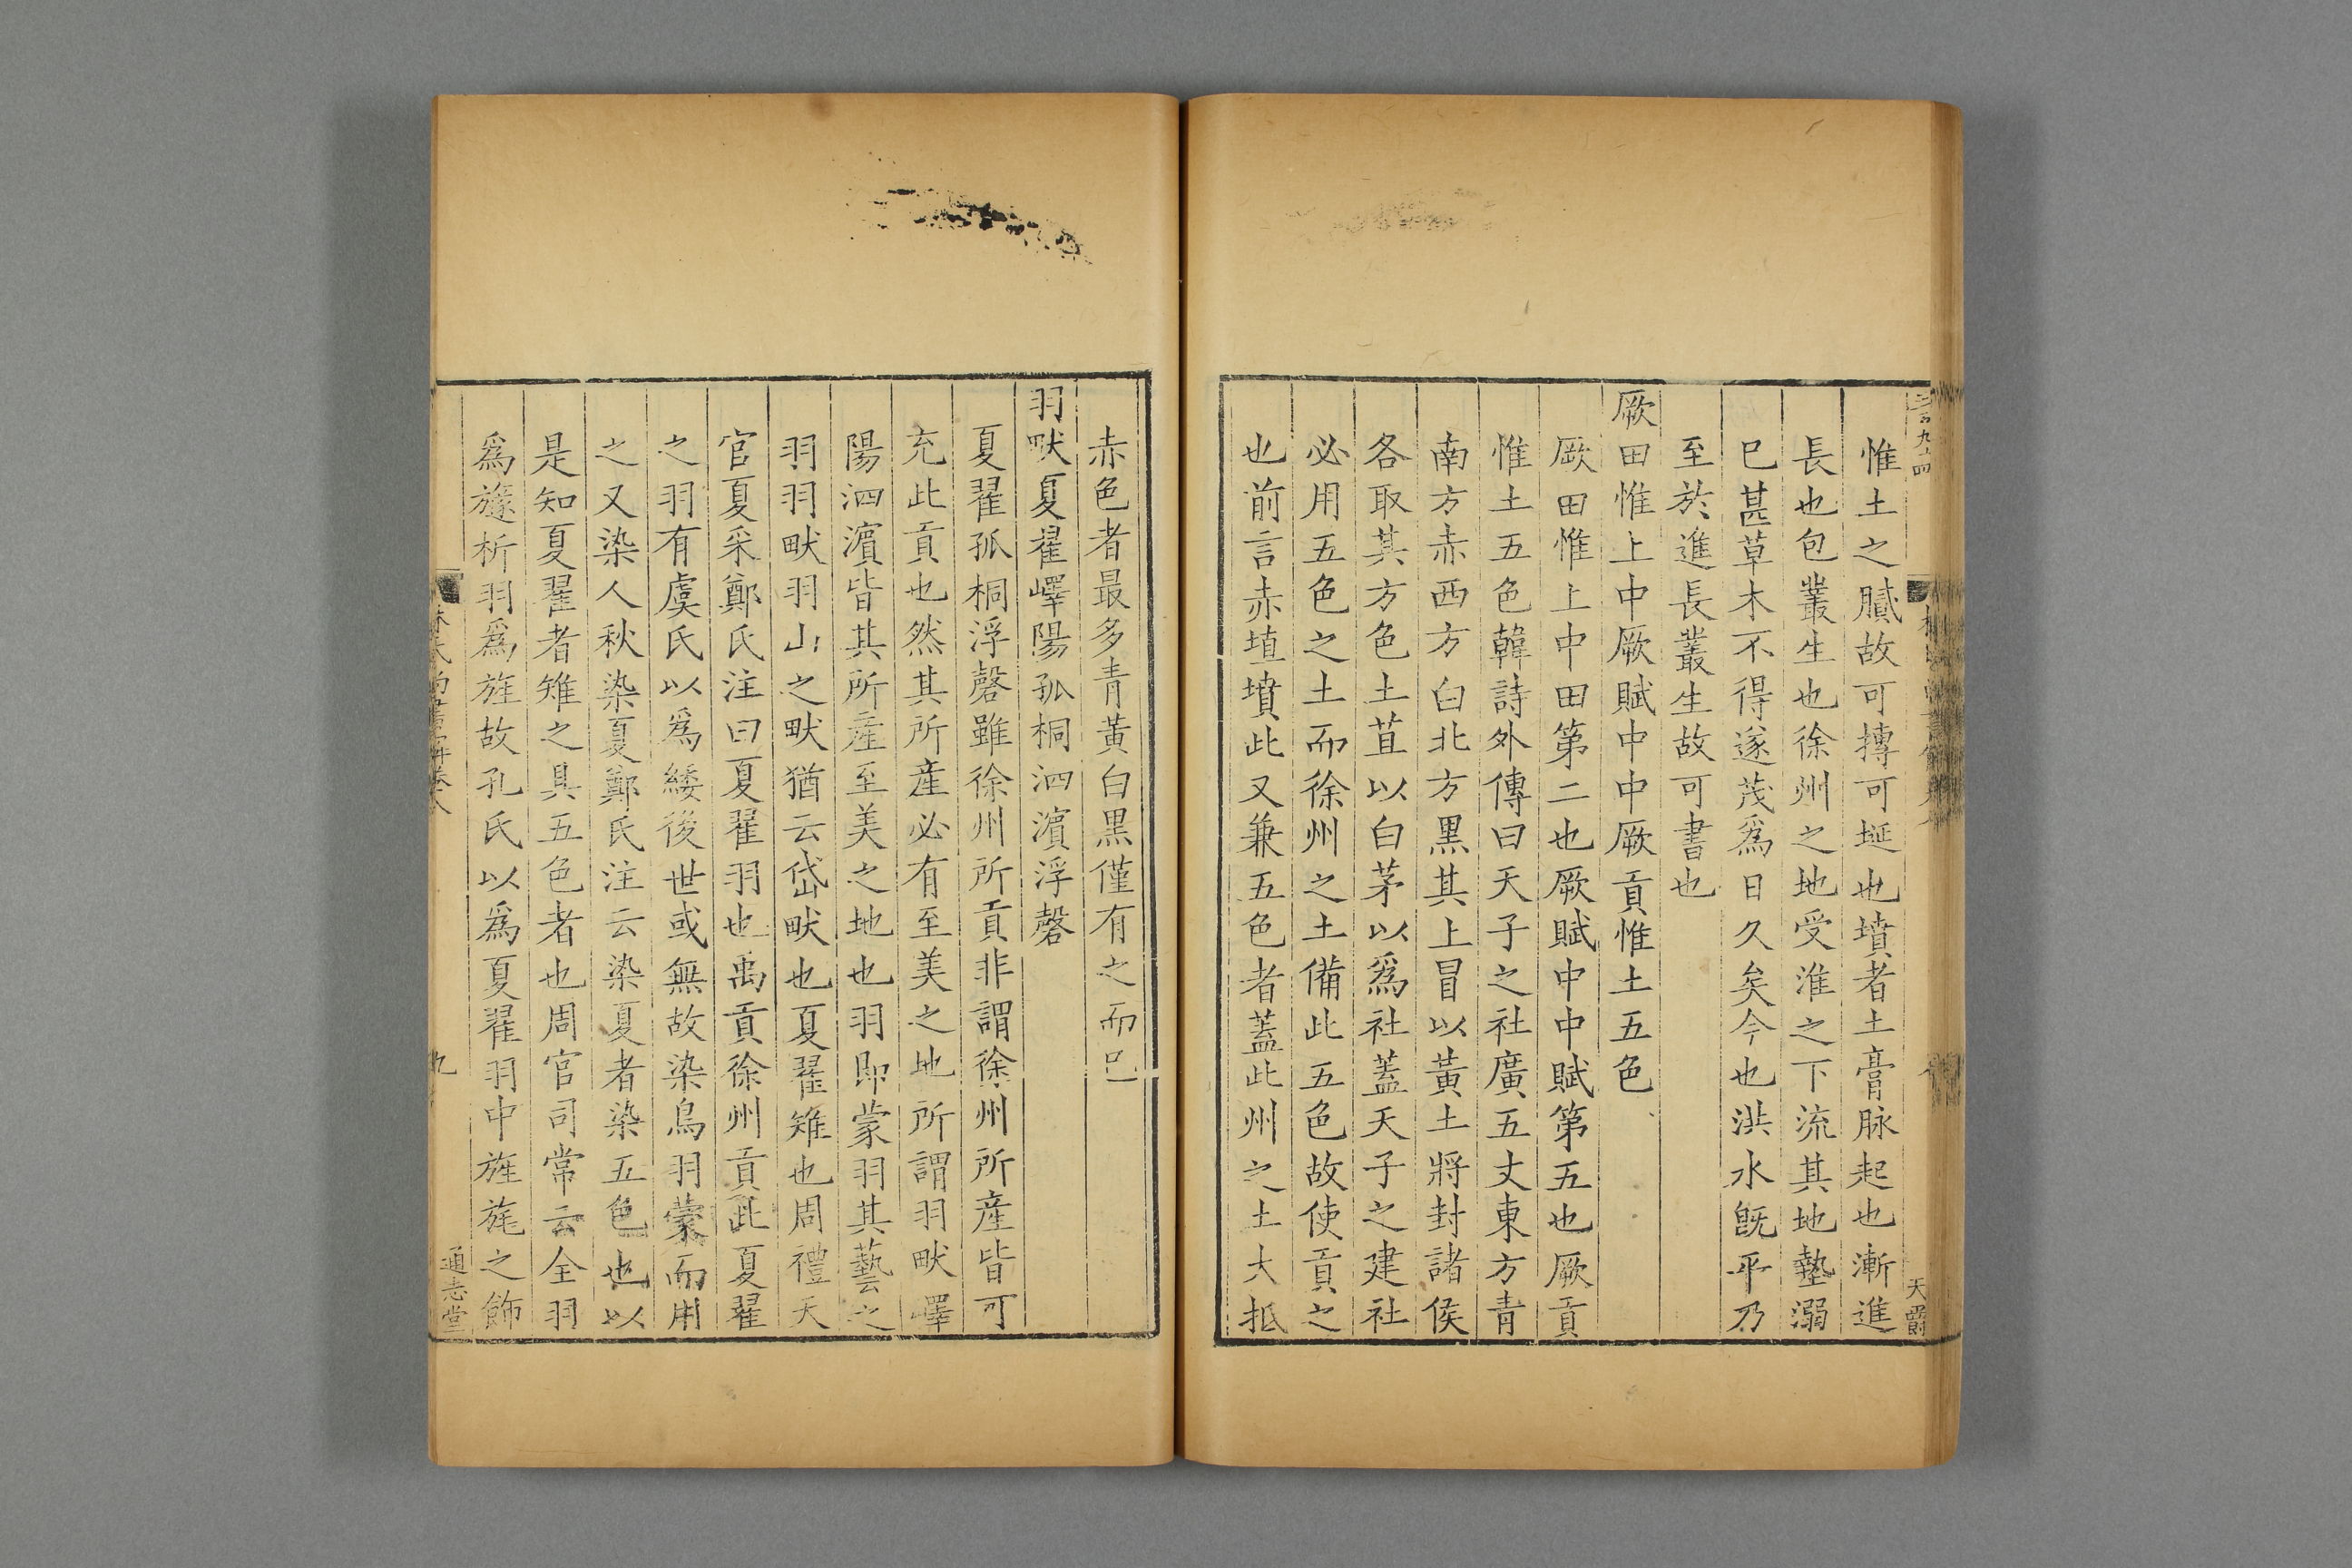 惟土之膩故可摶可埏也墳者土膏脉起也漸進
長也包叢生也徐州之地受淮之下流其地墊溺
巳甚草木不得遂茂爲日久矣今也洪水旣平乃
至於進長叢生故可書也
厥田惟上中厥賦中中厥貢惟土五色
厥田惟上中田第二也厥賦中中賦第五也厥貢
惟土五色韓詩外傳曰天子之社廣五丈東方青
南方赤西方白北方黒其上冒以黃土將封諸侯
各取其方色土苴以白茅以爲社蓋天子之建社
必用五色之土而徐州之土備此五色故使貢之
也前言赤埴墳此又兼五色者蓋此州之土大抵
天爵
赤色者最多青黃白黒僅有之而巳
羽畎夏翟嶧陽孤桐泗濵浮磬
夏翟孤桐浮磬雖徐州所貢非謂徐州所産皆可
充此貢也然其所産必有至美之地所謂羽畎嶧
陽泗濵皆其所産至美之地也羽即蒙羽其藝之
羽羽畎羽山之畎猶云岱畎也夏翟雉也周禮天
官夏采鄭氏注曰夏翟羽也禹貢徐州貢此夏翟
之羽有虞氏以爲緌後世或無故染鳥羽蒙而用
之又染人秋染夏鄭氏注云染夏者染五色也以
是知夏翟者雉之具五色者也周官司常云全羽
爲旞析羽爲旌故孔氏以爲夏翟羽中旌旄之飾
林氏尚書全解卷八
九
通志堂